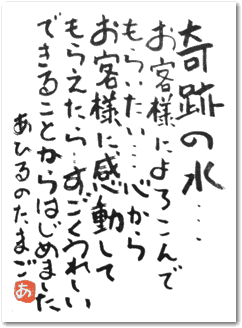 奇跡の水‥‥
お客様によろこんで
もらいたい…心から
お客様に感動して
もらえたら…すごくうれしい
できることからはじめました
あひるのたまご
あ